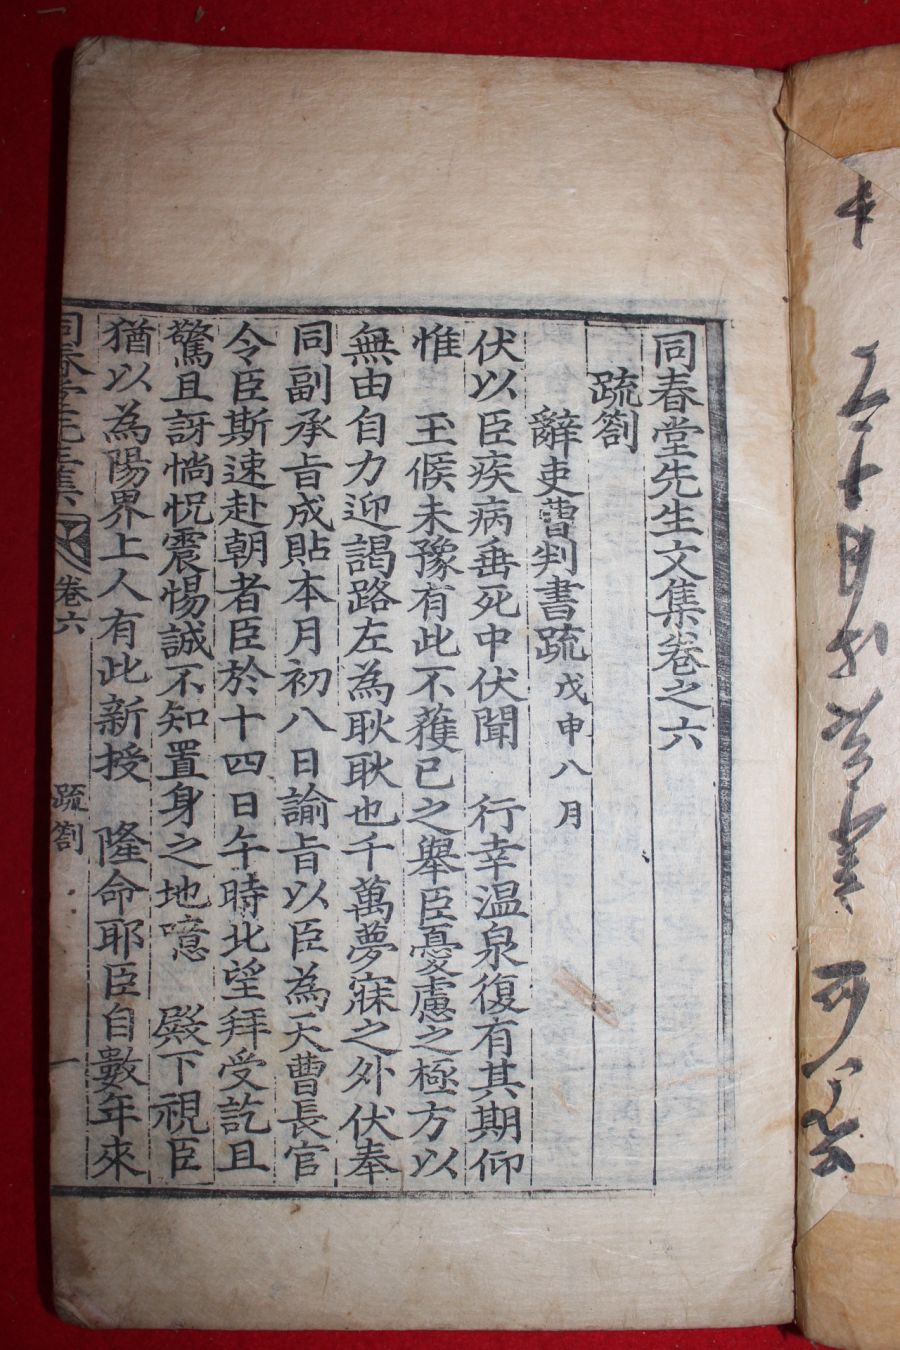 同春堂先生文集卷之六
疏劄
辭吏曹判書疏戊申八月
伏以臣疾病垂死中伏聞 行幸温泉復有其期仰
惟 玉候未豫有此不獲已之舉臣憂慮之極方以
無由自力迎謁路左為耿耿也千萬夢寐之外伏奉
同副承旨成貼本月初八日諭旨以臣為天曹長官
令臣斯速赴朝者臣於十四日午時北望拜受訖且
驚且訝惝怳震惕誠不知置身之地噫 殿下視臣
猶以為陽界上人有此新授 隆命耶臣自數年來
同春堂先生集 卷六 疏劄 一